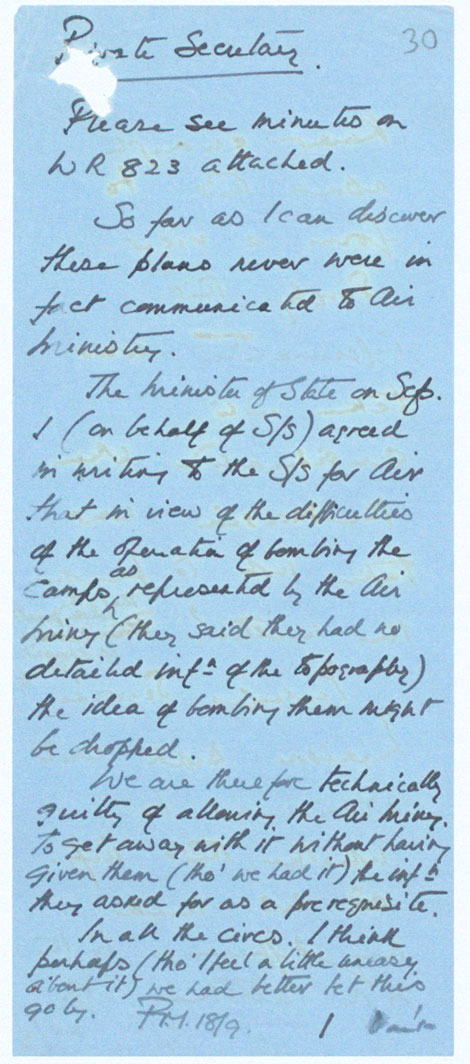 30
Private Secretary.
Please see minutes on
WR 823 attached.
So far as I can discover
these plans never were in
fact communicated to Air
Ministry.
The Minister of State on Sep.
1 (on behalf of S/S) agreed
in writing to the S/S for Air
that in view of the difficulties
of the operation of bombing the
camps, as represented by the Air
Miny (they said they had no
detailed infn of the topography)
the idea of bombing them might
be dropped.
We are therefore technically
guilty of allowing the Air Miny.
to get away with it without having
given them (tho' we had it) the infn
they asked for as a prerequisite.
In all the circs. I think
perhaps (tho' I feel a little uneasy
about it) we had better let this
go by. 18/9.